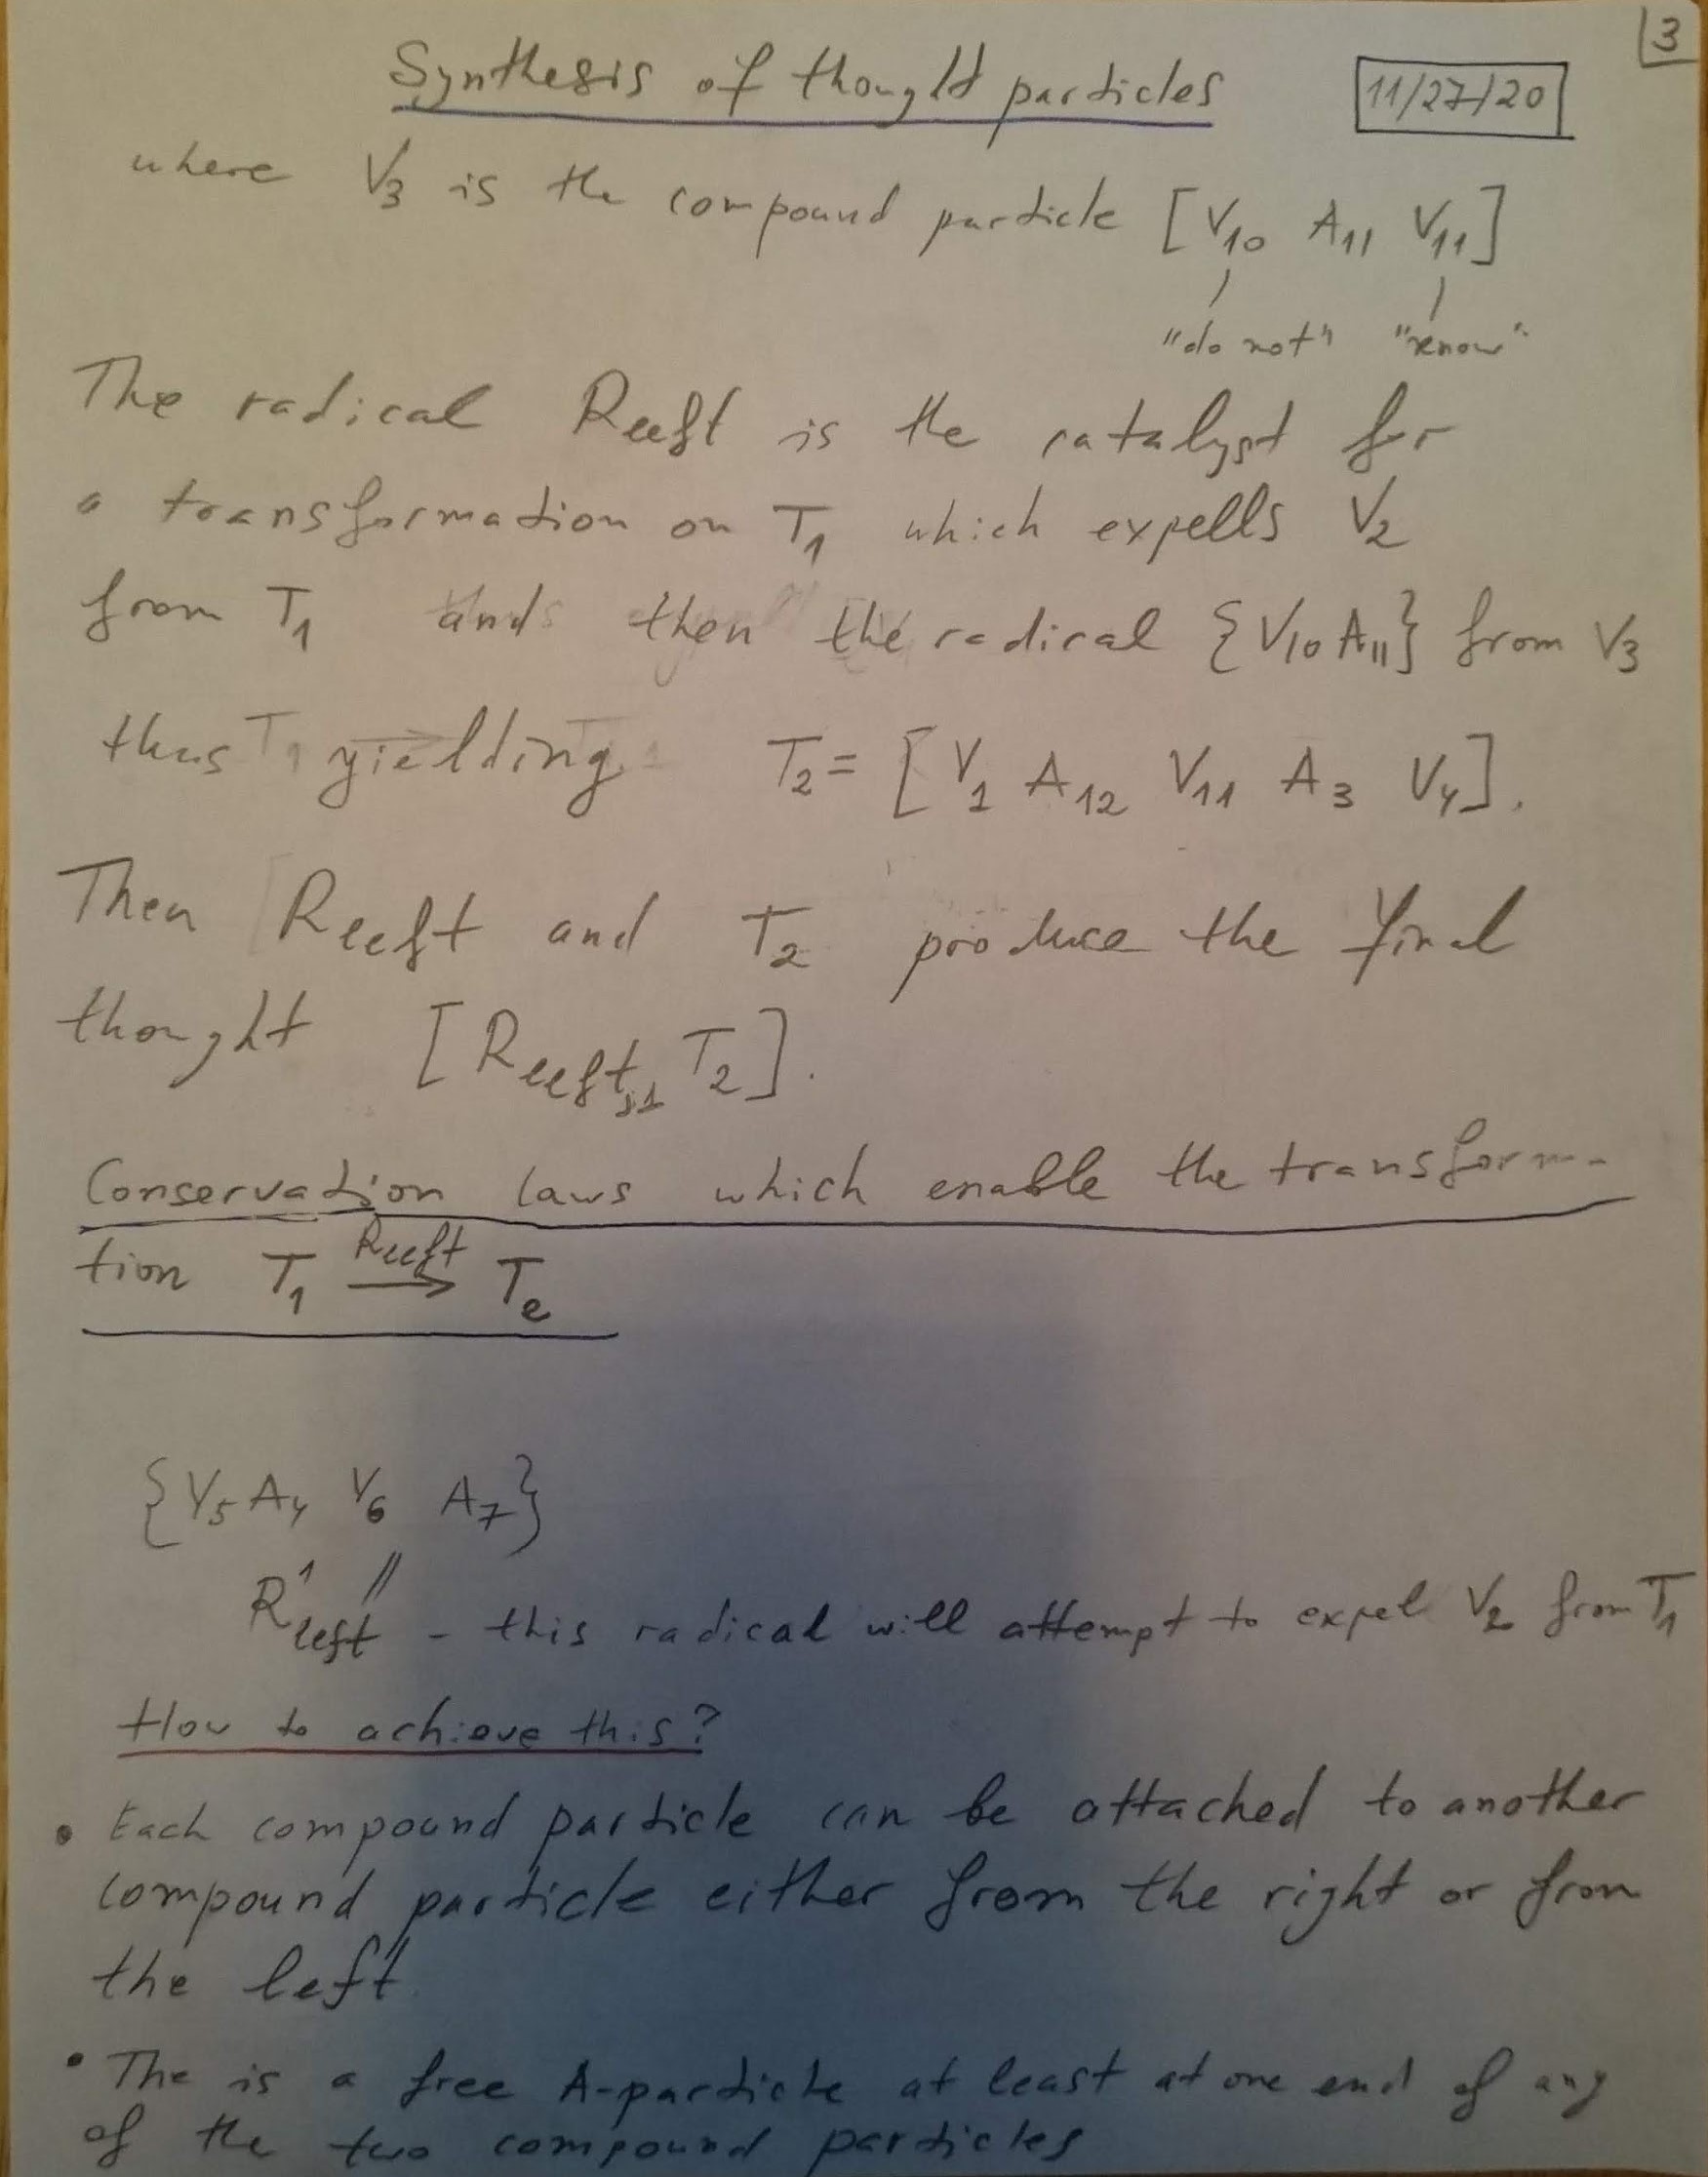 3
Synthesis of thought particles 11/27/20
where V₃ is the compound particle [V₁₀ A₁₁ V₁₁]
"do not" "know"
The radical Rleft is the catalyst for
a transformation on T₁ which expells V₂
from T₁ and then the radical {V₁₀ A₁₁} from V₃
thus yielding T₂ = [V₁ A₁₂ V₁₁ A₃ V₄].
Then Rleft and T₂ produce the final
thought [Rleft,1 T₂].
Conservation laws which enable the transforma-
tion T₁ Rleft → T₂
{V₅ A₄ V₆ A₇}
R¹left - this radical will attempt to expel V₂ from T₁
How to achieve this?
• Each compound particle can be attached to another
compound particle either from the right or from
the left.
• The is a free A-particle at least at one end of any
of the two compound particles